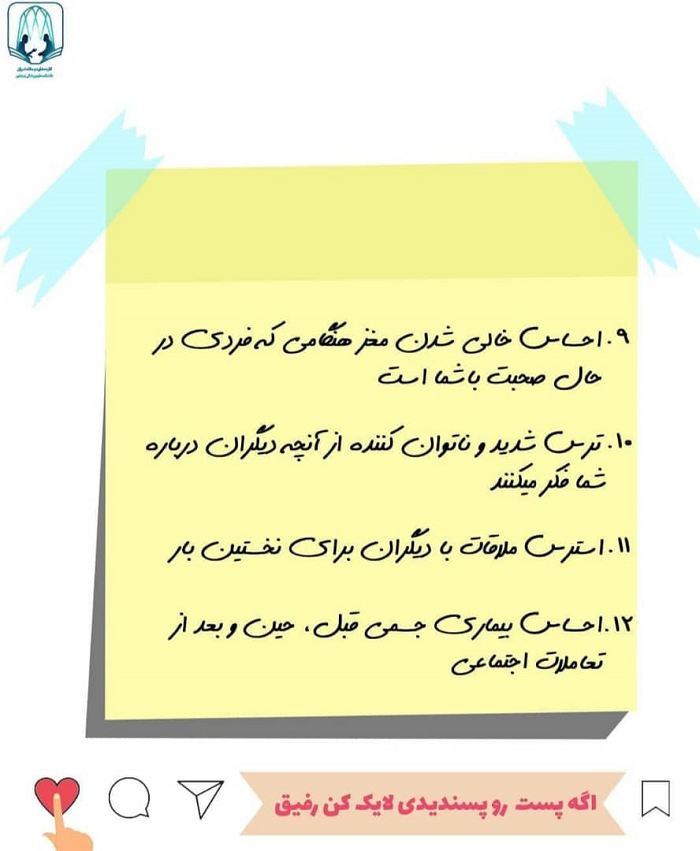 ۹. احساس خالی شدن مغز هنگامی که فردی در
حال صحبت با شما است
۱۰. ترس شدید و ناتوان کننده از آنچه دیگران درباره
شما فکر میکنند
۱۱. استرس ملاقات با دیگران برای نخستین بار
۱۲. احساس بیماری جسمی قبل، حین و بعد از
تعاملات اجتماعی
اگه پست رو پسندیدی لایک کن رفیق